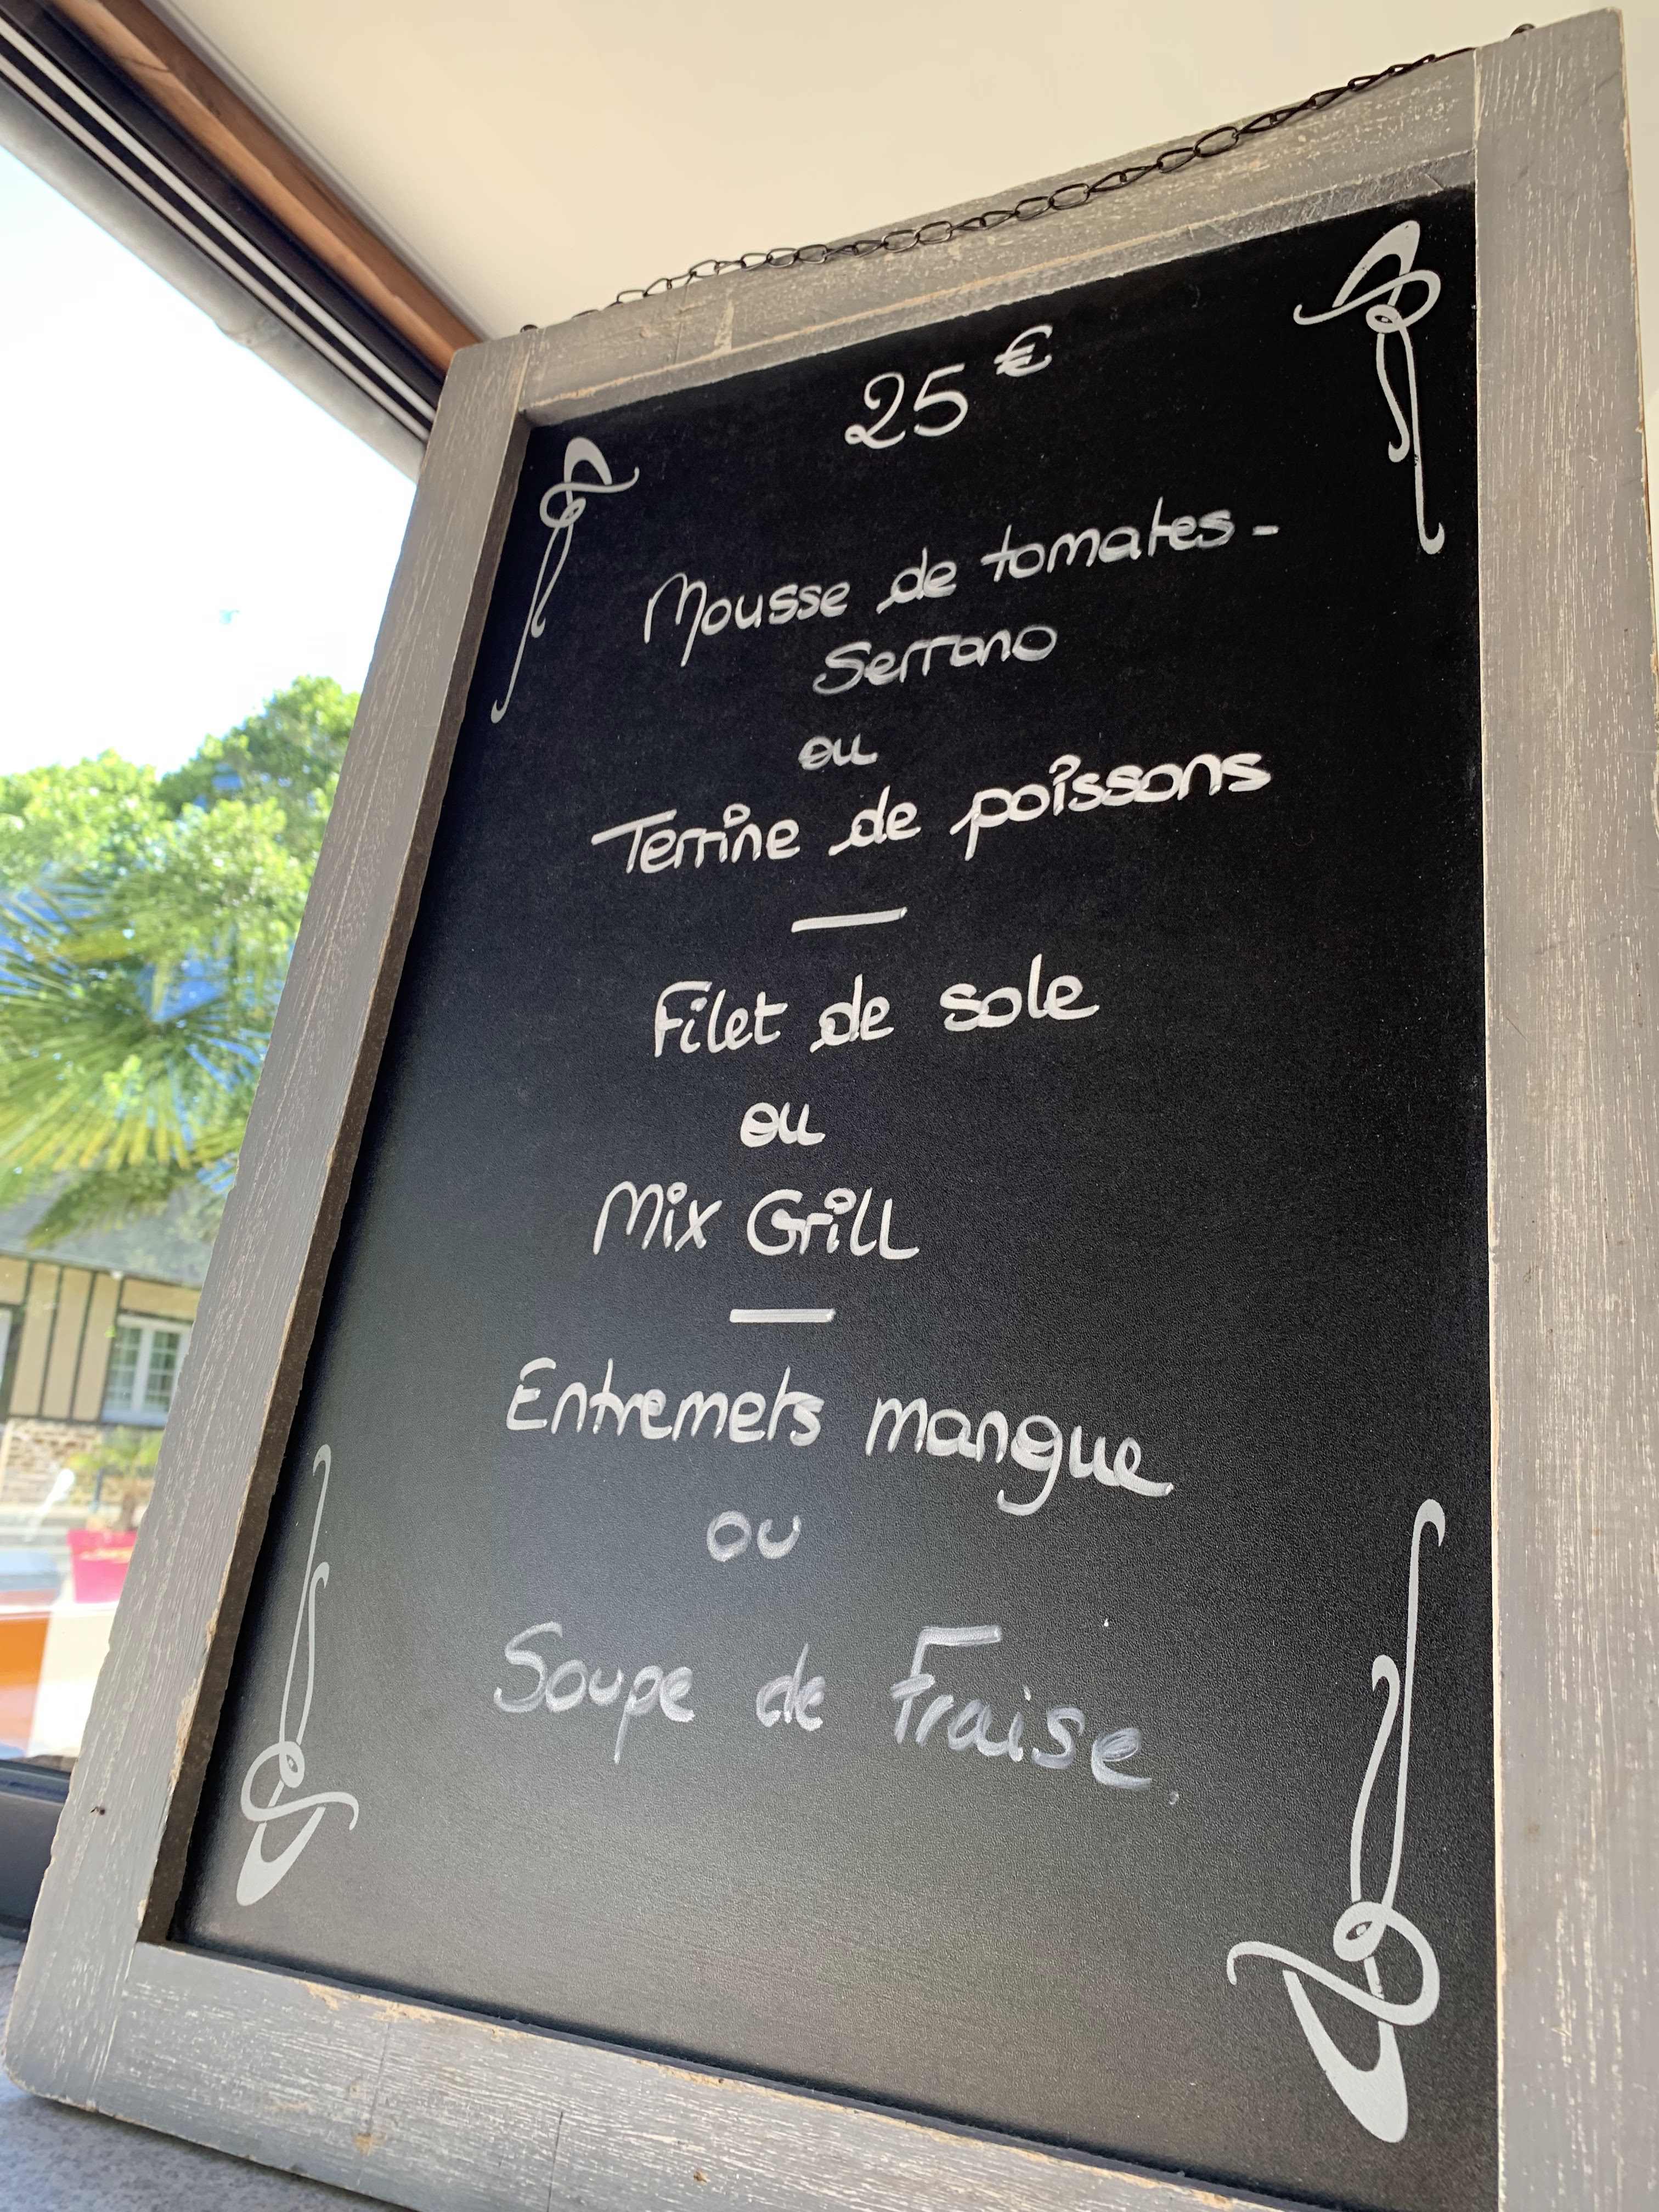 25 €
Mousse de tomates -
Serrano
ou
Terrine de poissons
Filet de sole
ou
Mix Grill
Entremets mangue
ou
Soupe de Fraise.